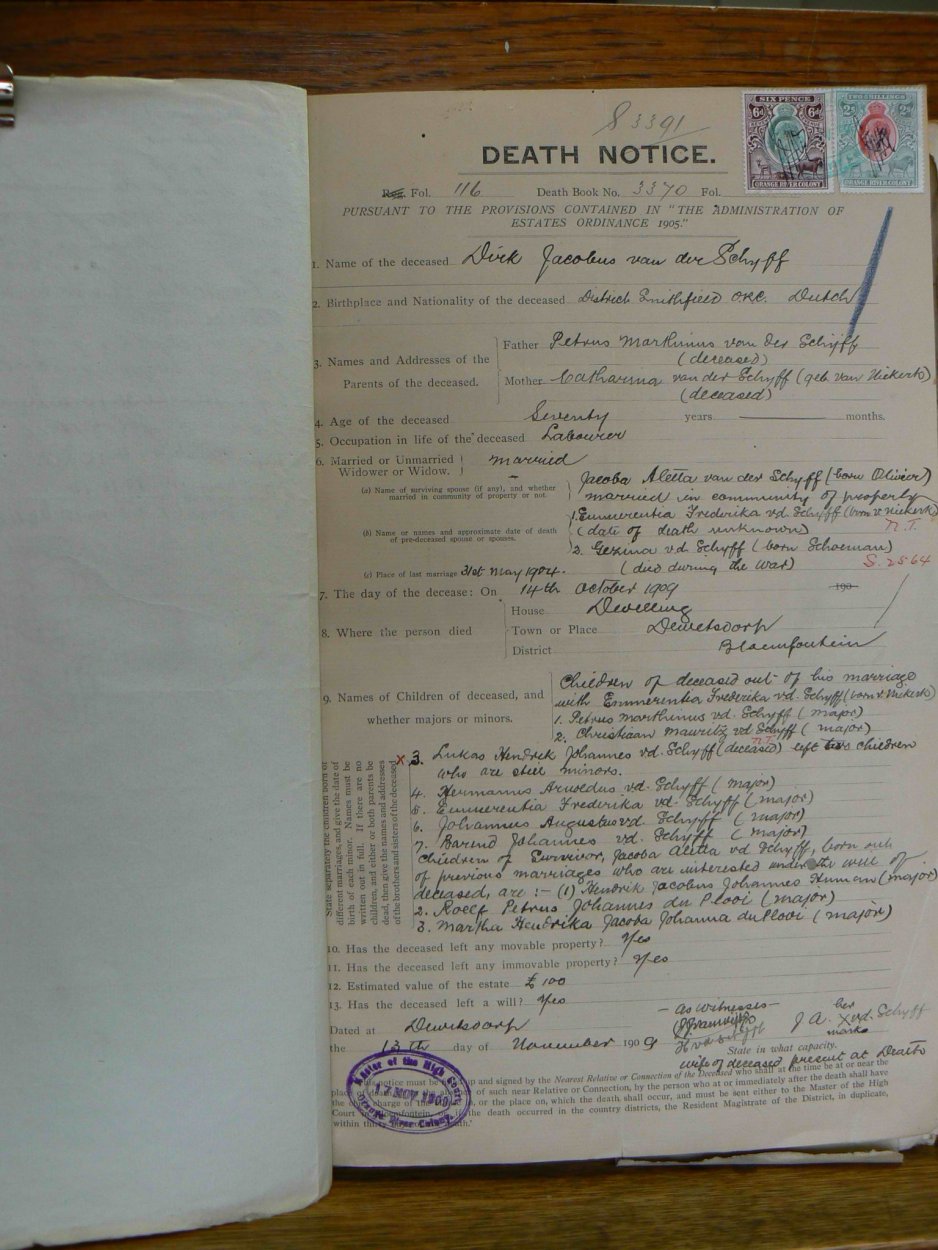 S 3391
SIX PENCE
6d 6d
ORANGE RIVER COLONY
TWO SHILLINGS
2/- 2/-
ORANGE RIVER COLONY
DEATH NOTICE.
Reg. Fol. 116 Death Book No. 3370 Fol.
PURSUANT TO THE PROVISIONS CONTAINED IN "THE ADMINISTRATION OF
ESTATES ORDINANCE 1905."
1. Name of the deceased Dirk Jacobus van der Schyff
2. Birthplace and Nationality of the deceased District Smithfield ORC. Dutch
3. Names and Addresses of the
Parents of the deceased.
Father Petrus Marthinus van der Schyff
(deceased)
Mother Catharina van der Schyff (geb. van Niekerk)
(deceased)
4. Age of the deceased Seventy years months.
5. Occupation in life of the deceased Labourer
6. Married or Unmarried married
Widower or Widow.
(a) Name of surviving spouse (if any), and whether
married in community of property or not.
Jacoba Aletta van der Schyff (born Olivier)
married in community of property
(b) Name or names and approximate date of death
of pre-deceased spouse or spouses.
1. Emmerentia Frederika vd. Schyff (born v. Niekerk)
(date of death unknown) N.T.
2. Gezina v.d. Schyff (born Schoeman)
(died during the War) S. 2564
(c) Place of last marriage 31st May 1904.
7. The day of the decease: On 14th October 1909 190
8. Where the person died
House Dwelling
Town or Place Dewetsdorp
District Bloemfontein
9. Names of Children of deceased, and
whether majors or minors.
Children of deceased out of his marriage
with Emmerentia Frederika vd. Schyff (born v. Niekerk)
1. Petrus Marthinus vd. Schyff (major)
2. Christiaan Mauritz vd Schyff (major)
N.T.
X 3. Lukas Hendrik Johannes vd. Schyff (deceased) left children
who are still minors.
4. Hermanus Arwedus vd. Schyff (major)
5. Emmerentia Frederika vd. Schyff (major)
6. Johannes Augustus vd. Schyff (major)
7. Barend Johannes vd. Schyff (major)
Children of Survivor, Jacoba Aletta vd Schyff, born out
of previous marriages who are interested under the will of
deceased, are :- (1) Hendrik Jacobus Johannes Human (major)
2. Roelf Petrus Johannes du Plooi (major)
3. Martha Hendrika Jacoba Johanna du Plooi (major)
State separately the children born of
different marriages, and give the date of
birth of each minor. Names must be
written out in full. If there are no
children, and either or both parents be
dead, then give the names and addresses
of the brothers and sisters of the deceased
10. Has the deceased left any movable property? Yes
11. Has the deceased left any immovable property? Yes
12. Estimated value of the estate £100
13. Has the deceased left a will? Yes
Dated at Dewetsdorp
- As witnesses -
H vd Schyff
J A. her X mark vd. Schyff
the 13th day of November 1909
State in what capacity.
wife of deceased present at Death
notice must be up and signed by the Nearest Relative or Connection of the Deceased who shall at the time be at or near the
place of such near Relative or Connection, by the person who at or immediately after the death shall have
charge of the or the place on, which the death shall occur, and must be sent either to the Master of the High
Court in Bloemfontein, or if the death occurred in the country districts, the Resident Magistrate of the District, in duplicate,
within
Master of the High Court
17 NOV 1909
Orange River Colony.